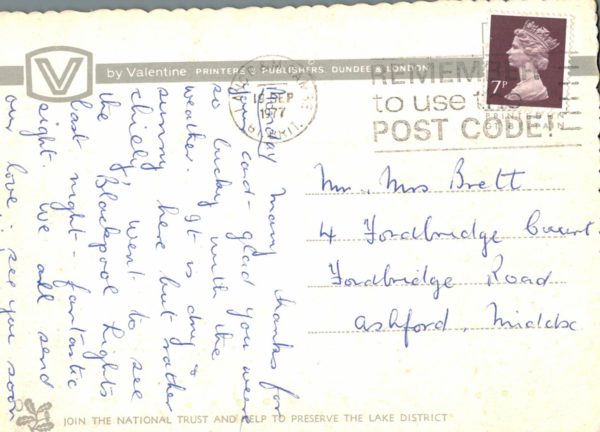 V
by Valentine PRINTERS & PUBLISHERS, DUNDEE & LONDON
19 SEP
1977
REMEMBER
to use the
POST CODE!
7P
Monday
Many thanks for
your card - glad you were
so lucky with the
weather. It is dry &
sunny here but rather
chilly, went to see
the Blackpool Lights
last night - fantastic
sight. We all send
our love. see you soon
Mr, Mrs Brett
4 Fordbridge Court.
Fordbridge Road
Ashford, Middx
JOIN THE NATIONAL TRUST AND HELP TO PRESERVE THE LAKE DISTRICT